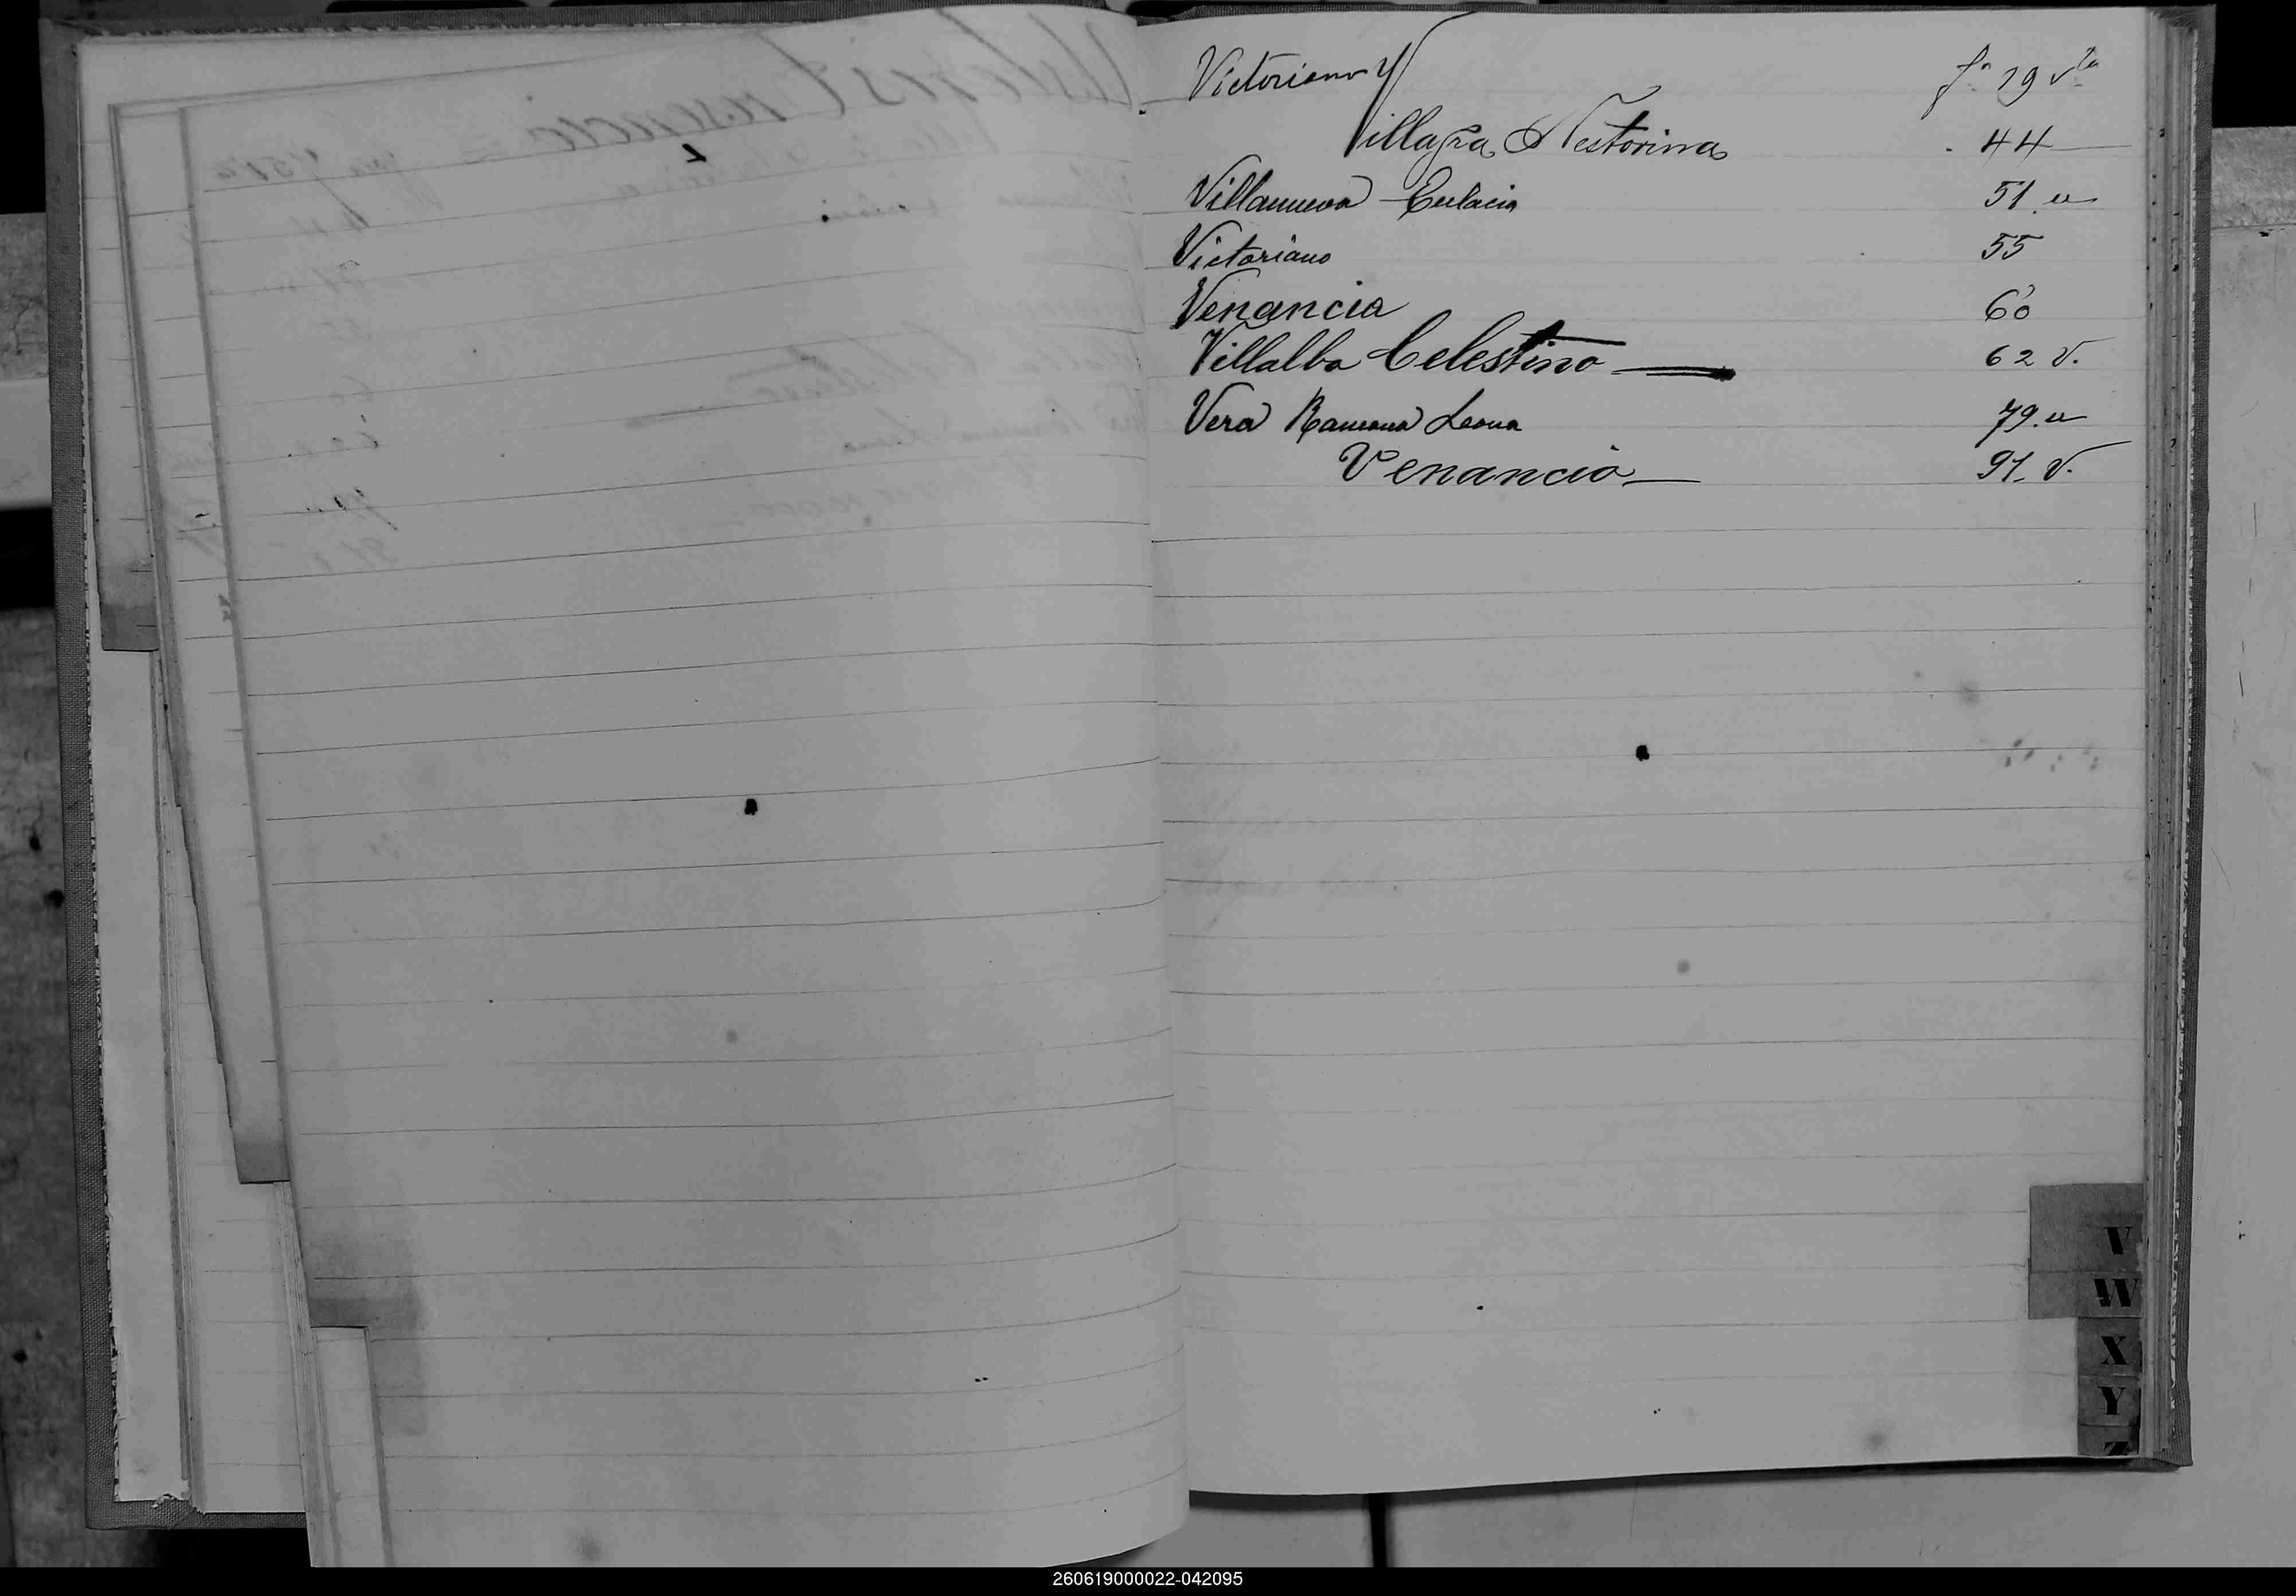 Victoriano Y fº 19 vta
Villagra Nestorina 44
Villanueva Eulacia 51 v
Victoriano 55
Venancia 60
Villalba Celestino 62 v.
Vera Ramona Leona 79. v
Venancio 91. v.
V
W
X
Y
Z
260619000022-042095